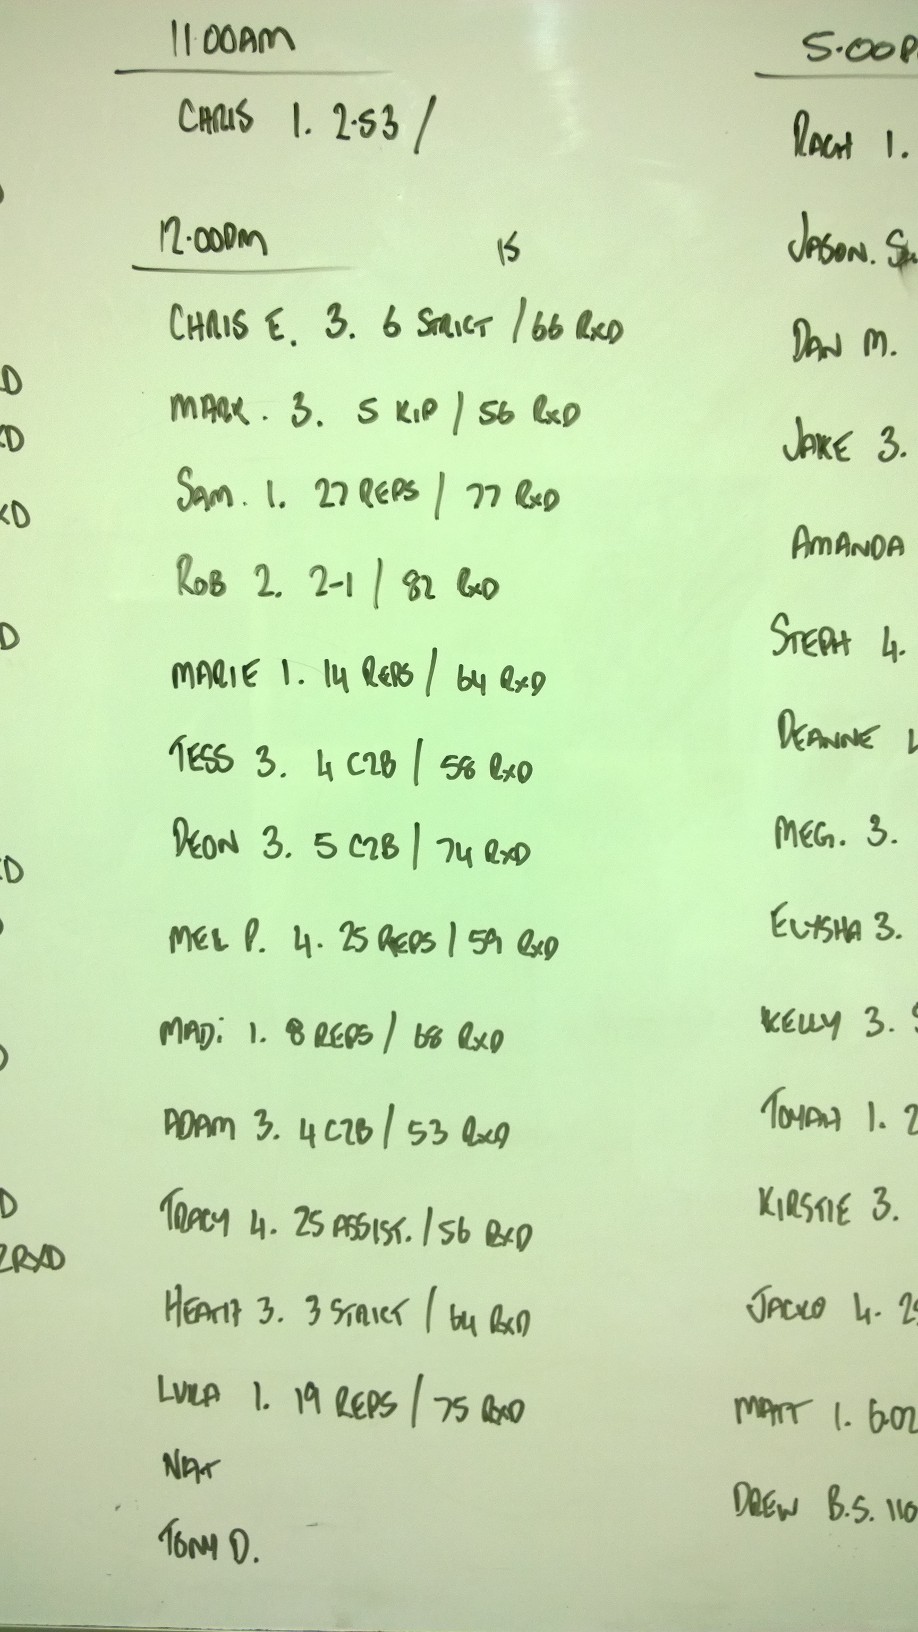 11:00AM
CHRIS 1. 2.53 /
12.00PM 15
CHRIS E. 3. 6 STRICT / 66 RXD
MARK. 3. 5 KIP / 56 RXD
SAM. 1. 27 REPS / 77 RXD
ROB 2. 2-1 / 82 RXD
MARIE 1. 14 REPS / 64 RXD
TESS 3. 4 C2B / 58 RXD
DEON 3. 5 C2B / 74 RXD
MEL P. 4. 25 REPS / 59 RXD
MADi 1. 8 REPS / 68 RXD
ADAM 3. 4 C2B / 53 RXD
TRACY 4. 25 ASSIST. / 56 RXD
HEATH 3. 3 STRICT / 64 RXD
LUKA 1. 19 REPS / 75 RXD
NAT
TONY D.
5.00P
RACH 1.
JASON.
DAN M.
JAKE 3.
AMANDA
STEPH 4.
DEANNE
MEG. 3.
ELYSHA 3.
KELLY 3.
TOYAH 1. 2
KIRSTIE 3.
JACKO 4. 25
MATT 1. 6.02
DREW B.S. 110
D
XD
XD
D
D
D
2RXD